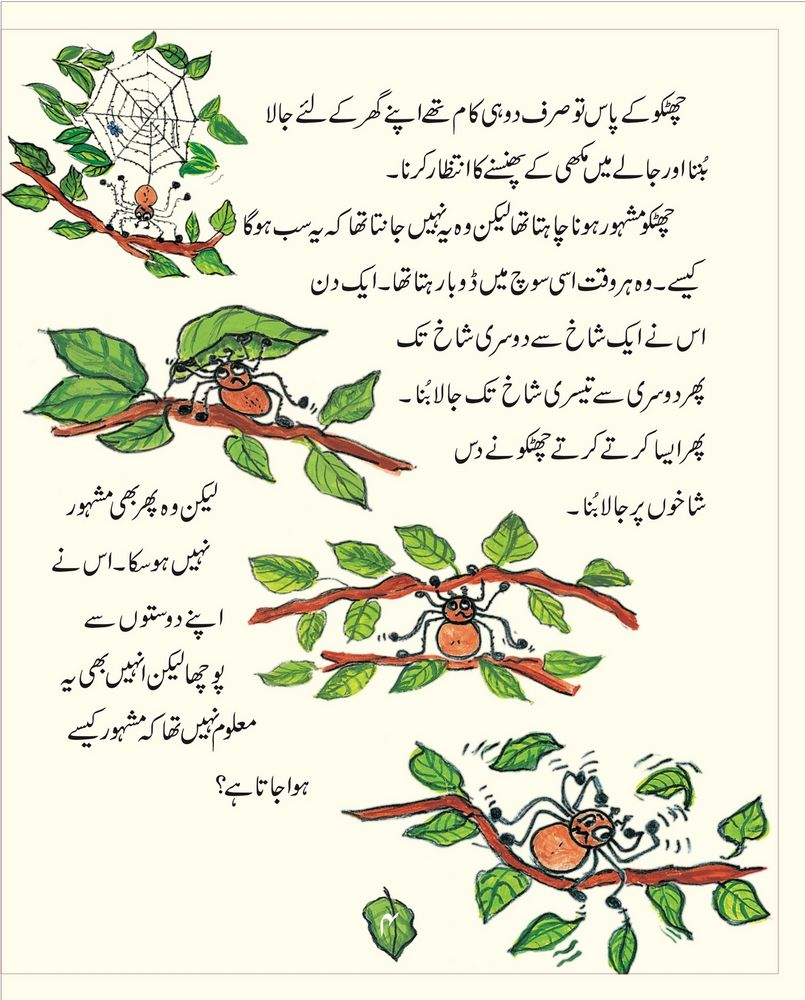 چھٹکو کے پاس تو صرف دو ہی کام تھے اپنے گھر کے لئے جالا
بُننا اور جالے میں مکھی کے پھنسنے کا انتظار کرنا۔
چھٹکو مشہور ہونا چاہتا تھا لیکن وہ یہ نہیں جانتا تھا کہ یہ سب ہوگا
کیسے۔ وہ ہر وقت اسی سوچ میں ڈوبا رہتا تھا۔ ایک دن
اس نے ایک شاخ سے دوسری شاخ تک
پھر دوسری سے تیسری شاخ تک جالا بُنا۔
پھر ایسا کرتے کرتے چھٹکو نے دس
شاخوں پر جالا بُنا۔
لیکن وہ پھر بھی مشہور
نہیں ہوسکا۔ اس نے
اپنے دوستوں سے
پوچھا لیکن انہیں بھی یہ
معلوم نہیں تھا کہ مشہور کیسے
ہوا جاتا ہے؟
۴